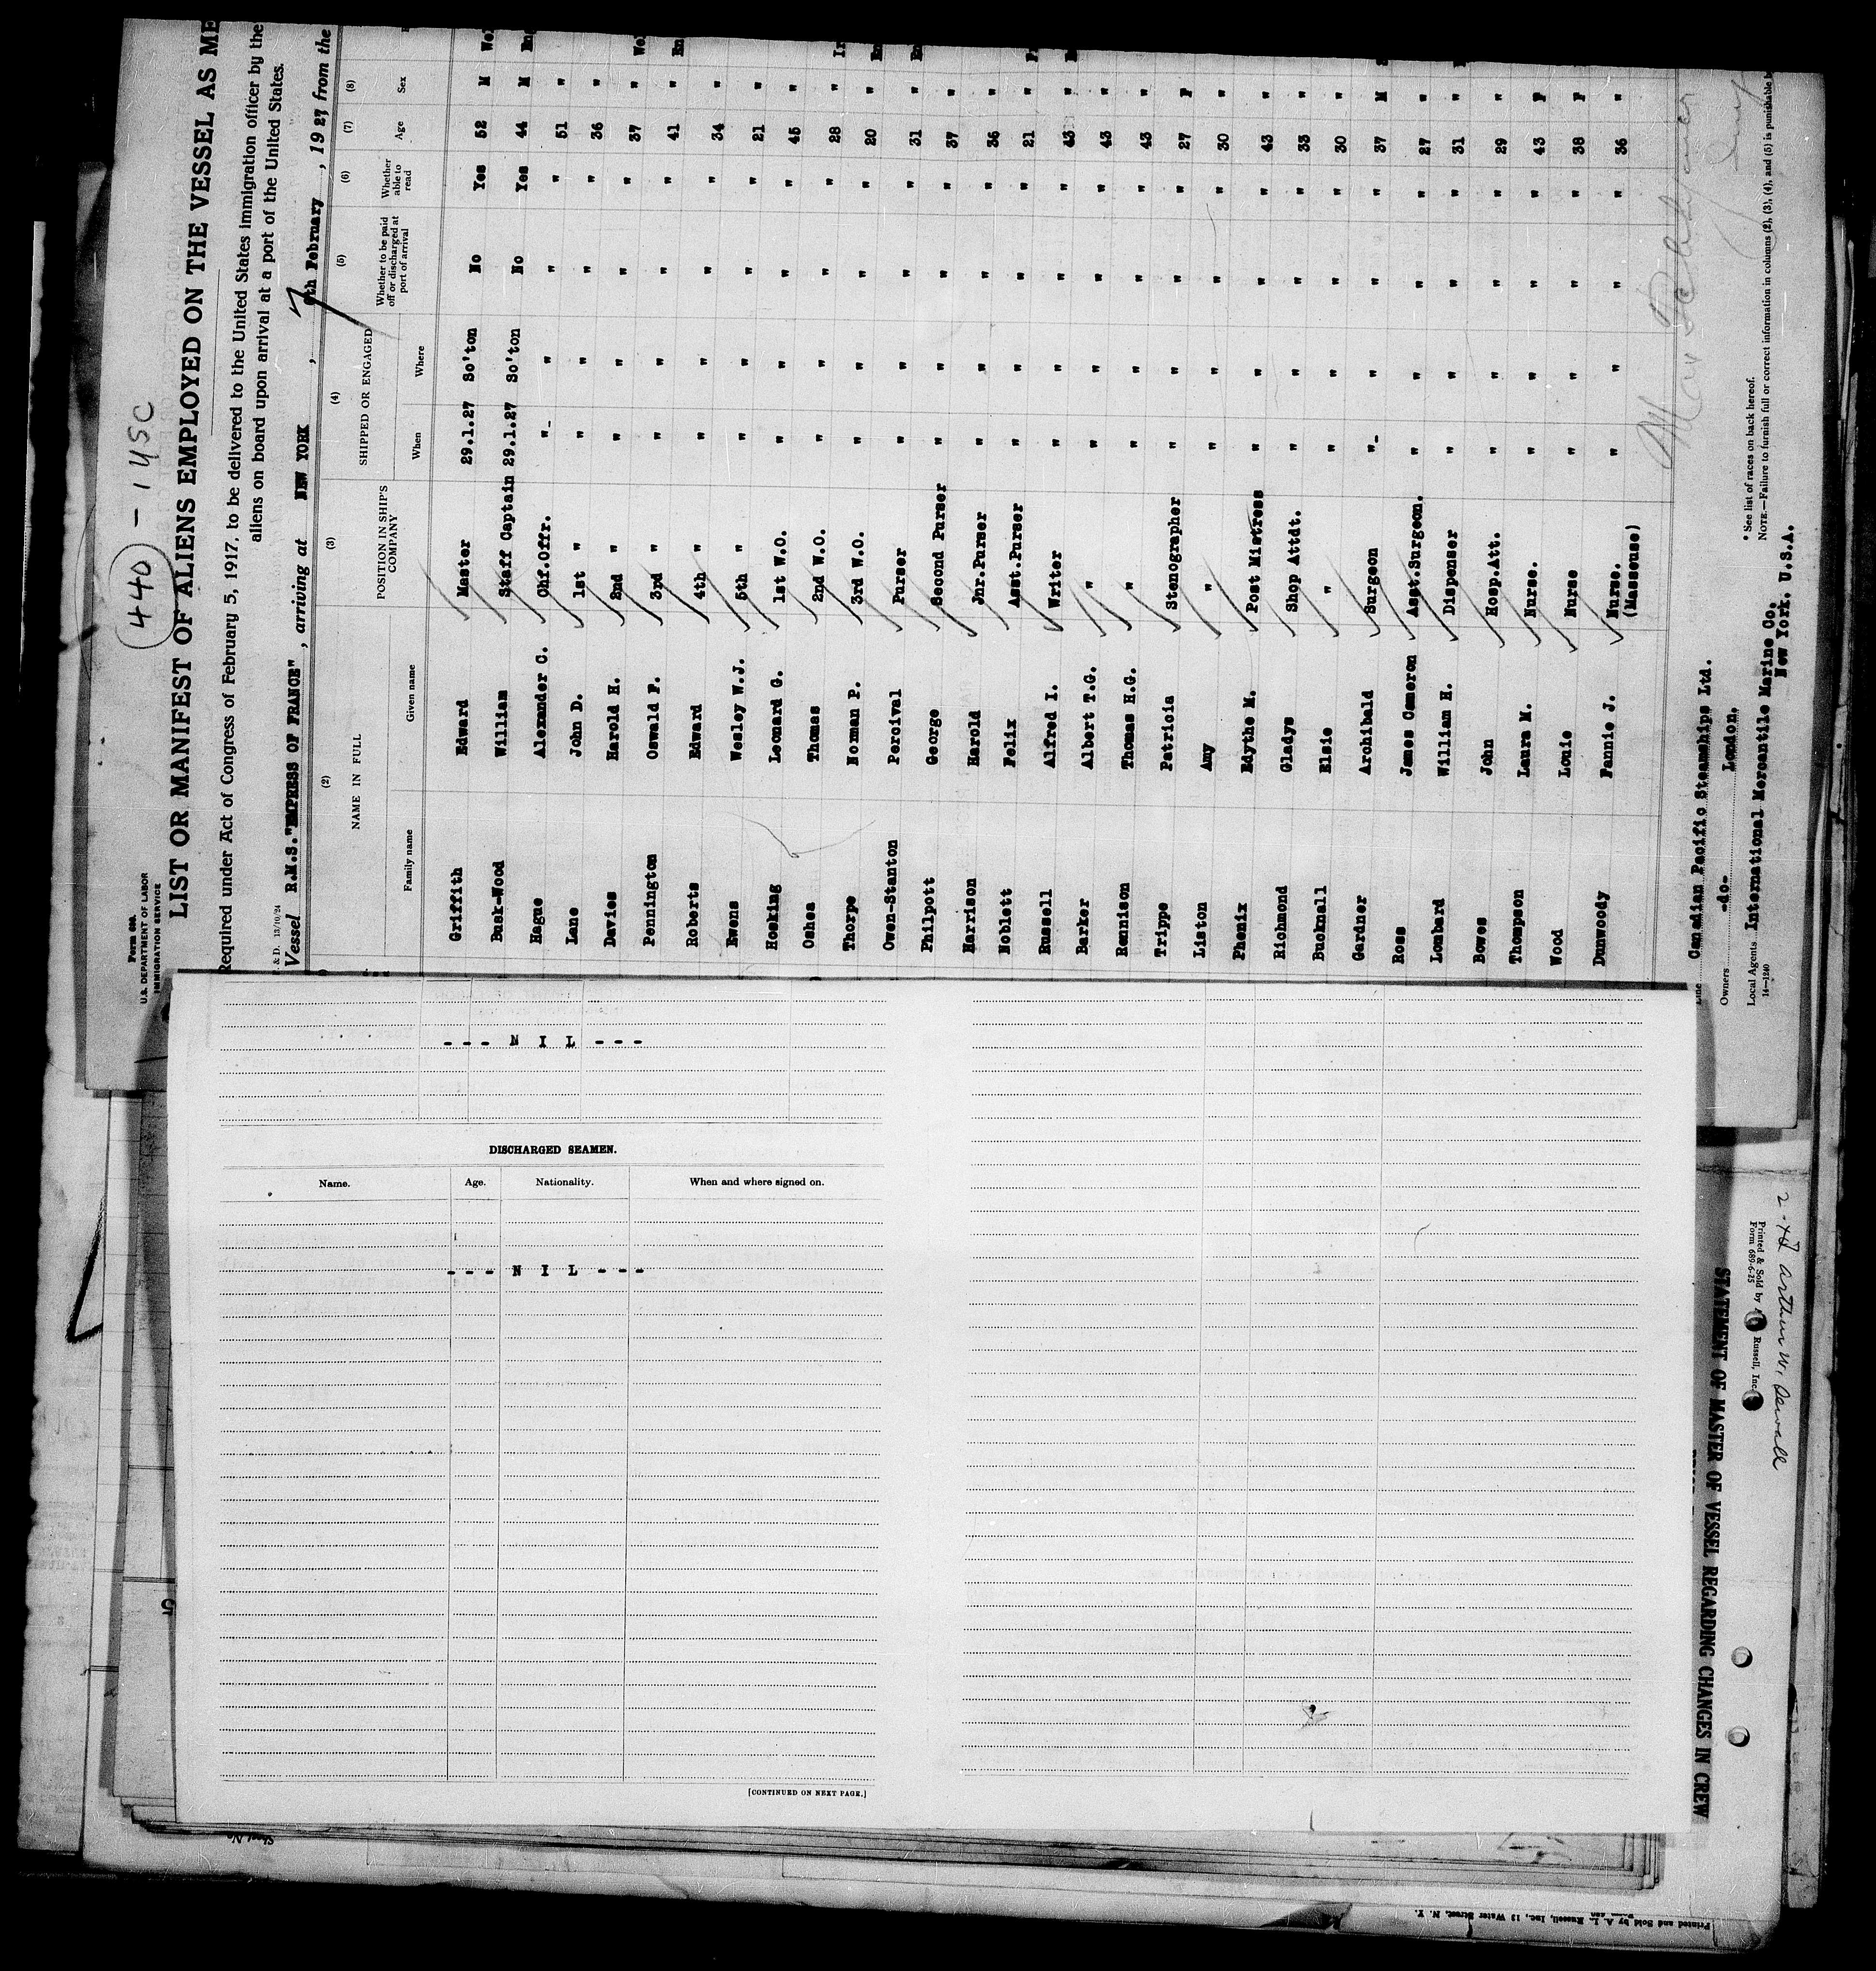 440 - 145C
Form 689.
U.S. DEPARTMENT OF LABOR
IMMIGRATION SERVICE
LIST OR MANIFEST OF ALIENS EMPLOYED ON THE VESSEL AS
Required under Act of Congress of February 5, 1917, to be delivered to the United States immigration officer by the
aliens on board upon arrival at a port of the United States.
& D. 13/10/24
Vessel R.M.S. "EMPRESS OF FRANCE" , arriving at NEW YORK , 7 th February , 1927 from the
(2) (3) (4) (5) (6) (7) (8)
NAME IN FULL POSITION IN SHIP'S COMPANY SHIPPED OR ENGAGED Whether to be paid off or discharged at port of arrival Whether able to read Age Sex
Family name Given name When Where
Griffith Edward Master 29.1.27 So'ton No Yes 52 M
Busk-Wood William Staff Captain 29.1.27 So'ton No Yes 44 M
Hague Alexander C. Chf.Offr. "- " " " 51 "
Lane John D. 1st " " " " " 36 "
Davies Harold H. 2nd " " " " " 37 "
Pennington Oswald F. 3rd " " " " " 41 "
Roberts Edward 4th " " " " " 34 "
Ewens Wesley W.J. 5th " " " " " 21 "
Hosking Leonard G. 1st W.O. " " " " 45 "
Oshea Thomas 2nd W.O. " " " " 28 "
Thorpe Norman P. 3rd W.O. " " " " 20 "
Owen-Stanton Percival Purser " " " " 31 "
Philpott George Second Purser " " " " 37 "
Harrison Harold Jnr.Purser " " " " 36 "
Noblett Felix Asst.Purser " " " " 21 "
Russell Alfred I. Writer " " " " 43 "
Barker Albert T.G. " " " " " 43 "
Rennison Thomas H.G. " " " " " 43 "
Trippe Patricia Stenographer " " " " 27 F
Liston Amy " " " " " 30 "
Phenix Edythe M. Post Mistress " " " " 43 "
Richmond Gladys Shop Attdt. " " " " 33 "
Bucknall Elsie " " " " " 30 "
Gardner Archibald Surgeon "- " " " 37 M
Ross James Cameron Asst.Surgeon. " " " " 27 "
Lombard William H. Dispenser " " " " 31 "
Bowes John Hosp.Att. " " " " 29 "
Thompson Laura M. Nurse. " " " " 43 F
Wood Louie Nurse " " " " 38 F
Dunwoody Fannie J. Nurse. " " " " 36 "
(Masseuse)
Line Canadian Pacific Steamships Ltd.
Owners -do- London.
Local Agents International Mercantile Marine Co.
New York. U.S.A.
14—1240
* See list of races on back hereof.
NOTE.—Failure to furnish full or correct information in columns (2), (3), (4), and (5) is punishable
- - - N I L - - -
DISCHARGED SEAMEN.
Name. Age. Nationality. When and where signed on.
- - - N I L - - -
[CONTINUED ON NEXT PAGE.]
Arthur W.
Printed & Sold by Russell, Inc
Form 689-6-25
STATEMENT OF MASTER OF VESSEL REGARDING CHANGES IN CREW
5
Sheet No
Printed and Sold by A. L. Russell, Inc., 12 Water Street, N. Y.